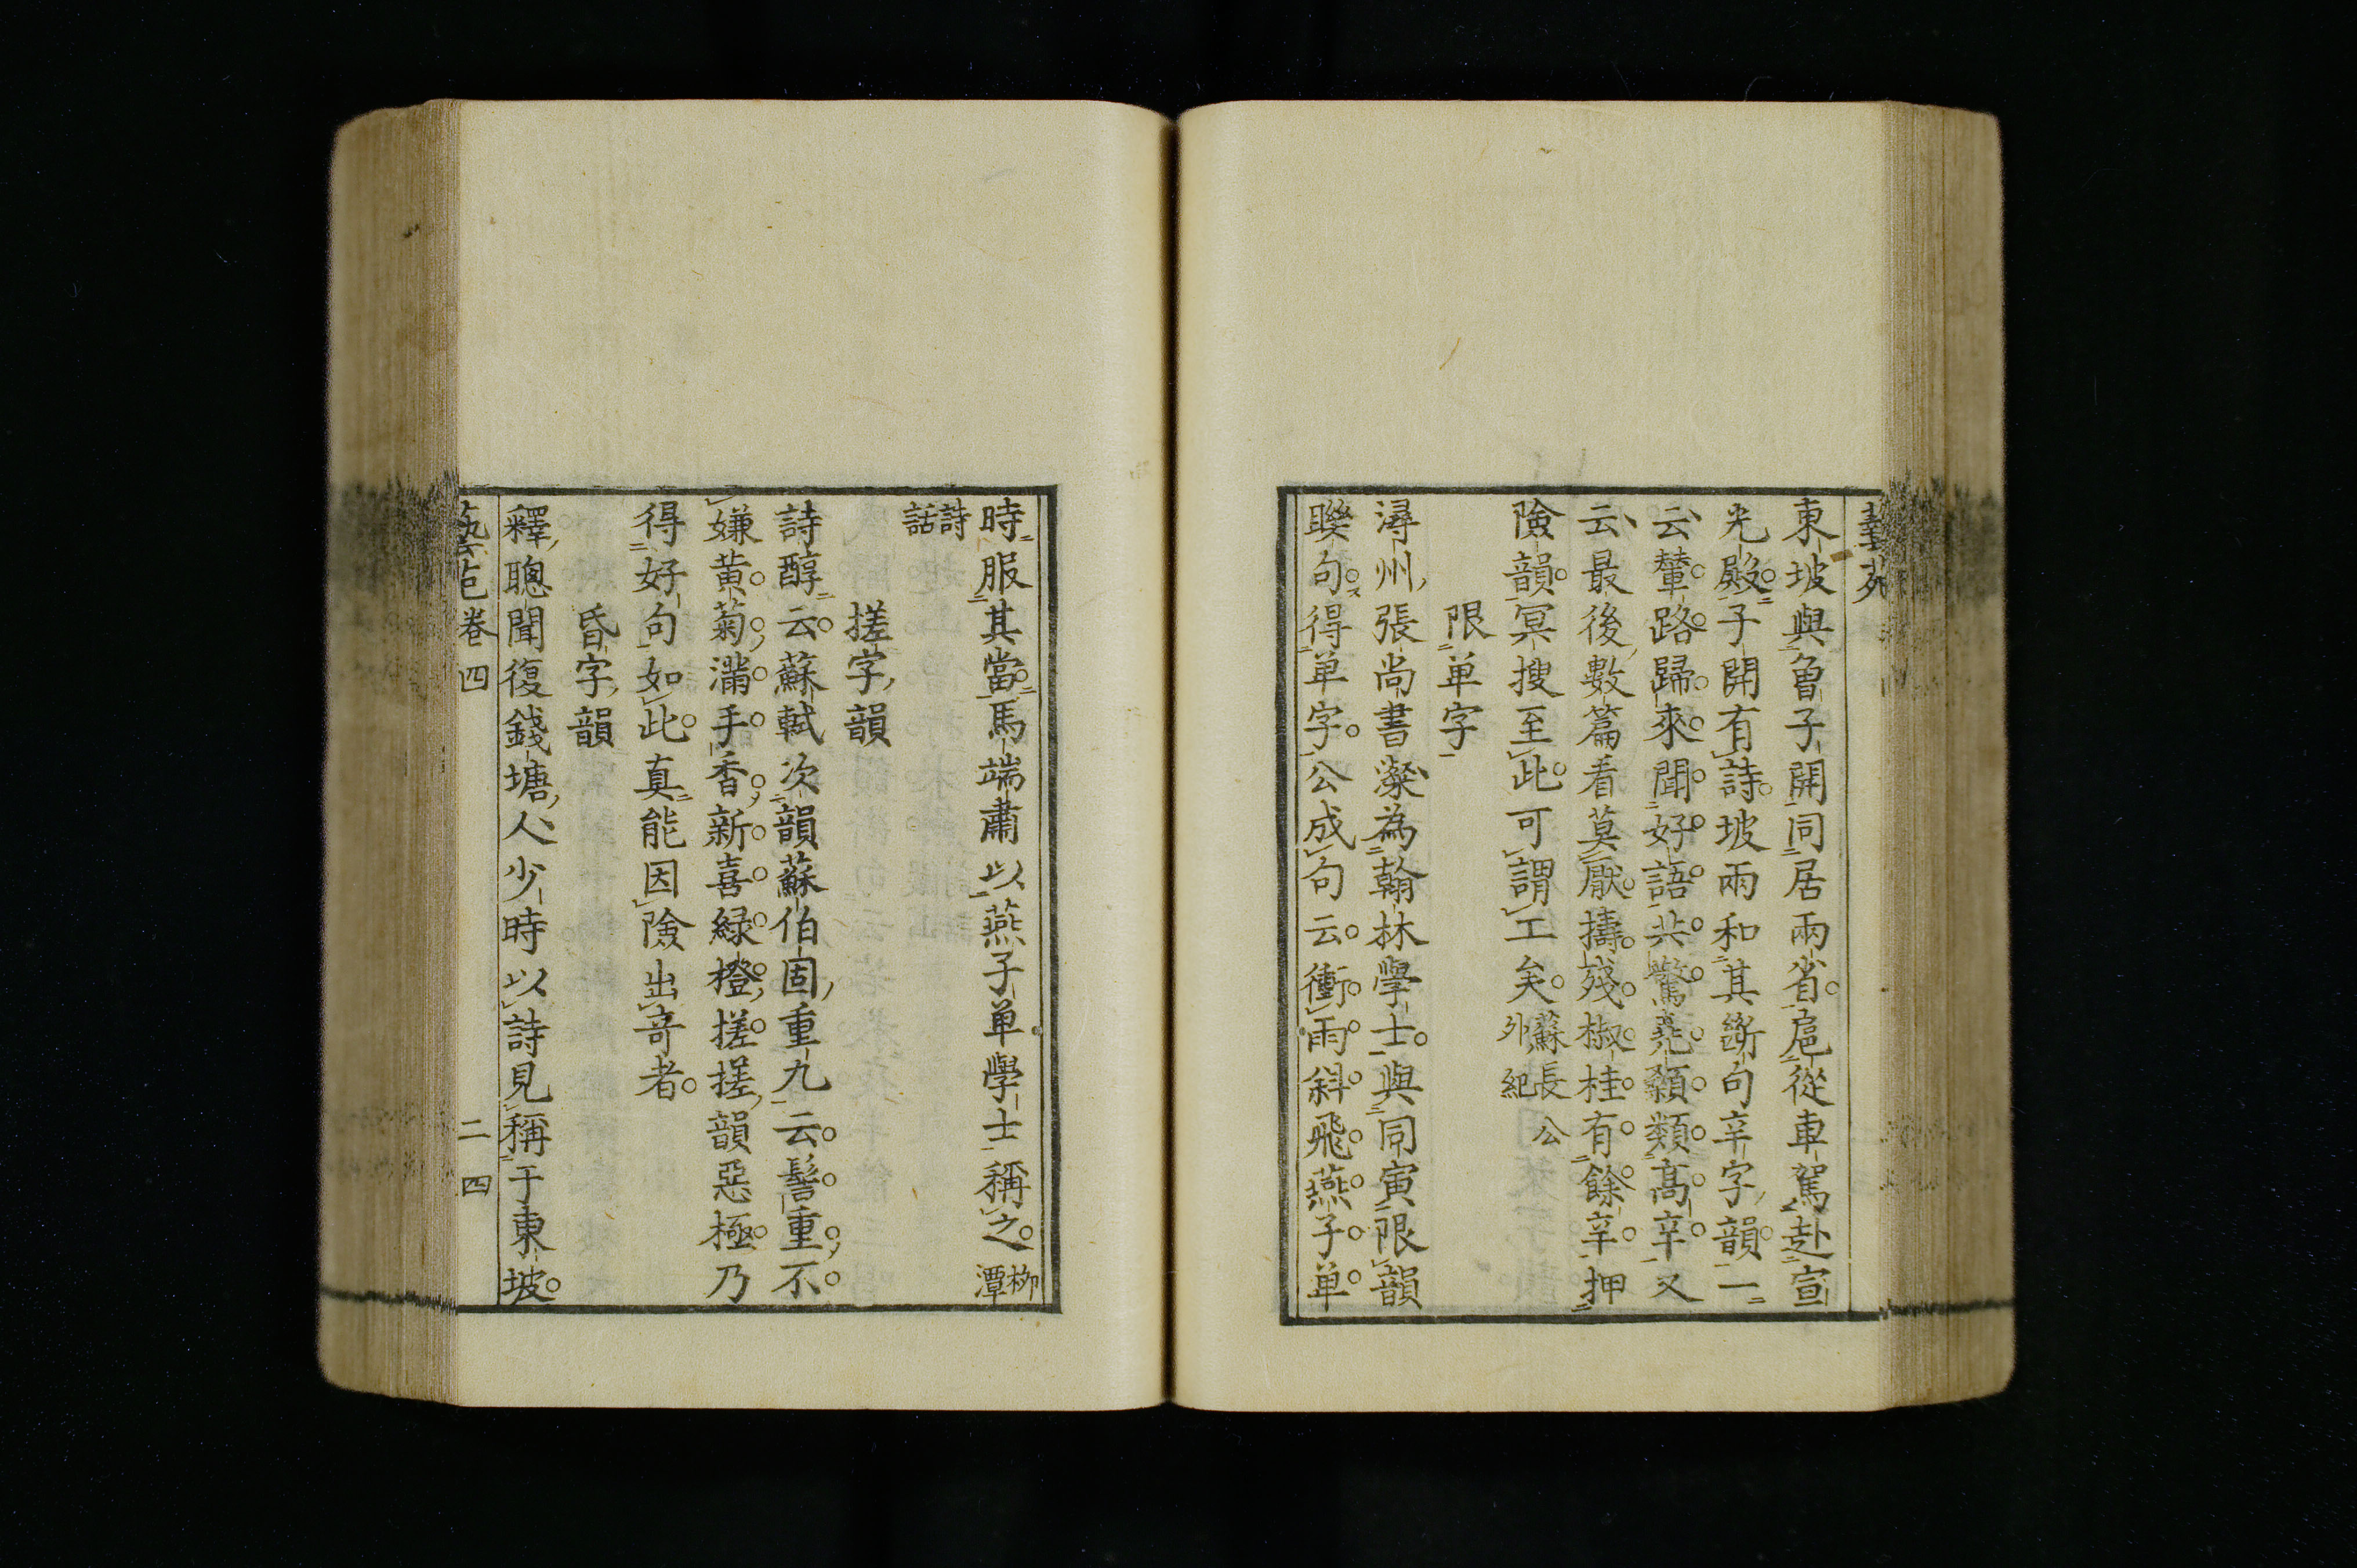 東坡與魯子開同居兩省扈從車駕赴宣
光殿子開有詩坡兩和其斷句辛字韻一
云輦路歸來聞好語共驚堯顙類高辛又
云最後數篇看莫厭擣殘椒桂有餘辛押
險韻冥搜至此可謂工矣蘇長公外紀
限单字
潯州張尚書濙為翰林學士與同寅限韻
聮句得单字公成句云衝雨斜飛燕子单
時服其當馬端肅以燕子单學士稱之栁潭
詩話
搓字韻
詩醇云蘇軾次韻蘇伯固重九云髻重不
嫌黄菊滿手香新喜緑橙搓搓韻惡極乃
得好句如此真能因險出竒者
昏字韻
釋聰聞復錢塘人少時以詩見稱于東坡
卷四
二四